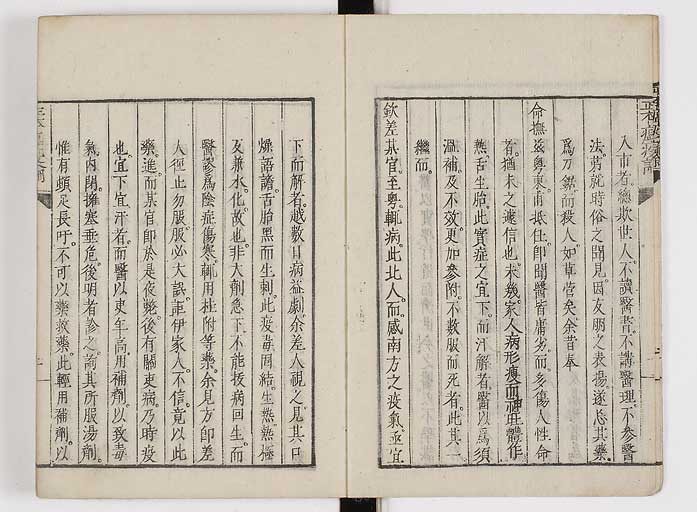 入市者總欺世人不讀醫書不講醫理不參醫
法剪就時俗之聞見因友朋之表揚遂忘其藥
為刀鋸而殺人如草菅矣余昔奉
命撫茲粵東甫抵任即聞醫皆庸劣而多傷人性命
者猶未之遽信也未幾家人病形瘦而神旺體作
熱舌生胎此實症之宜下而汗解者醫以為須
溫補及不效更加參附不數服而死者此其一
繼而
欽差某官至粵輒病此北人而感南方之疫氣亟宜
下而解者越數日病益劇余差人視之見其口
燥語譫舌胎黑而生刺此疫毒固結生熱熱極
反兼水化故也非大劑急下不能拔病回生而
醫謬為陰症傷寒輒用桂附等藥余見方即差
人徑止勿服服必大誤詎伊家人不信竟以此
藥進而某官即於是夜斃後有關吏病乃時疫
也宜下宜汗者而醫以吏年高用補劑以致毒
氣內閉擁塞垂危後明者診之前其所服湯劑
惟有頭足長吁不可以藥救藥此輕用補劑以